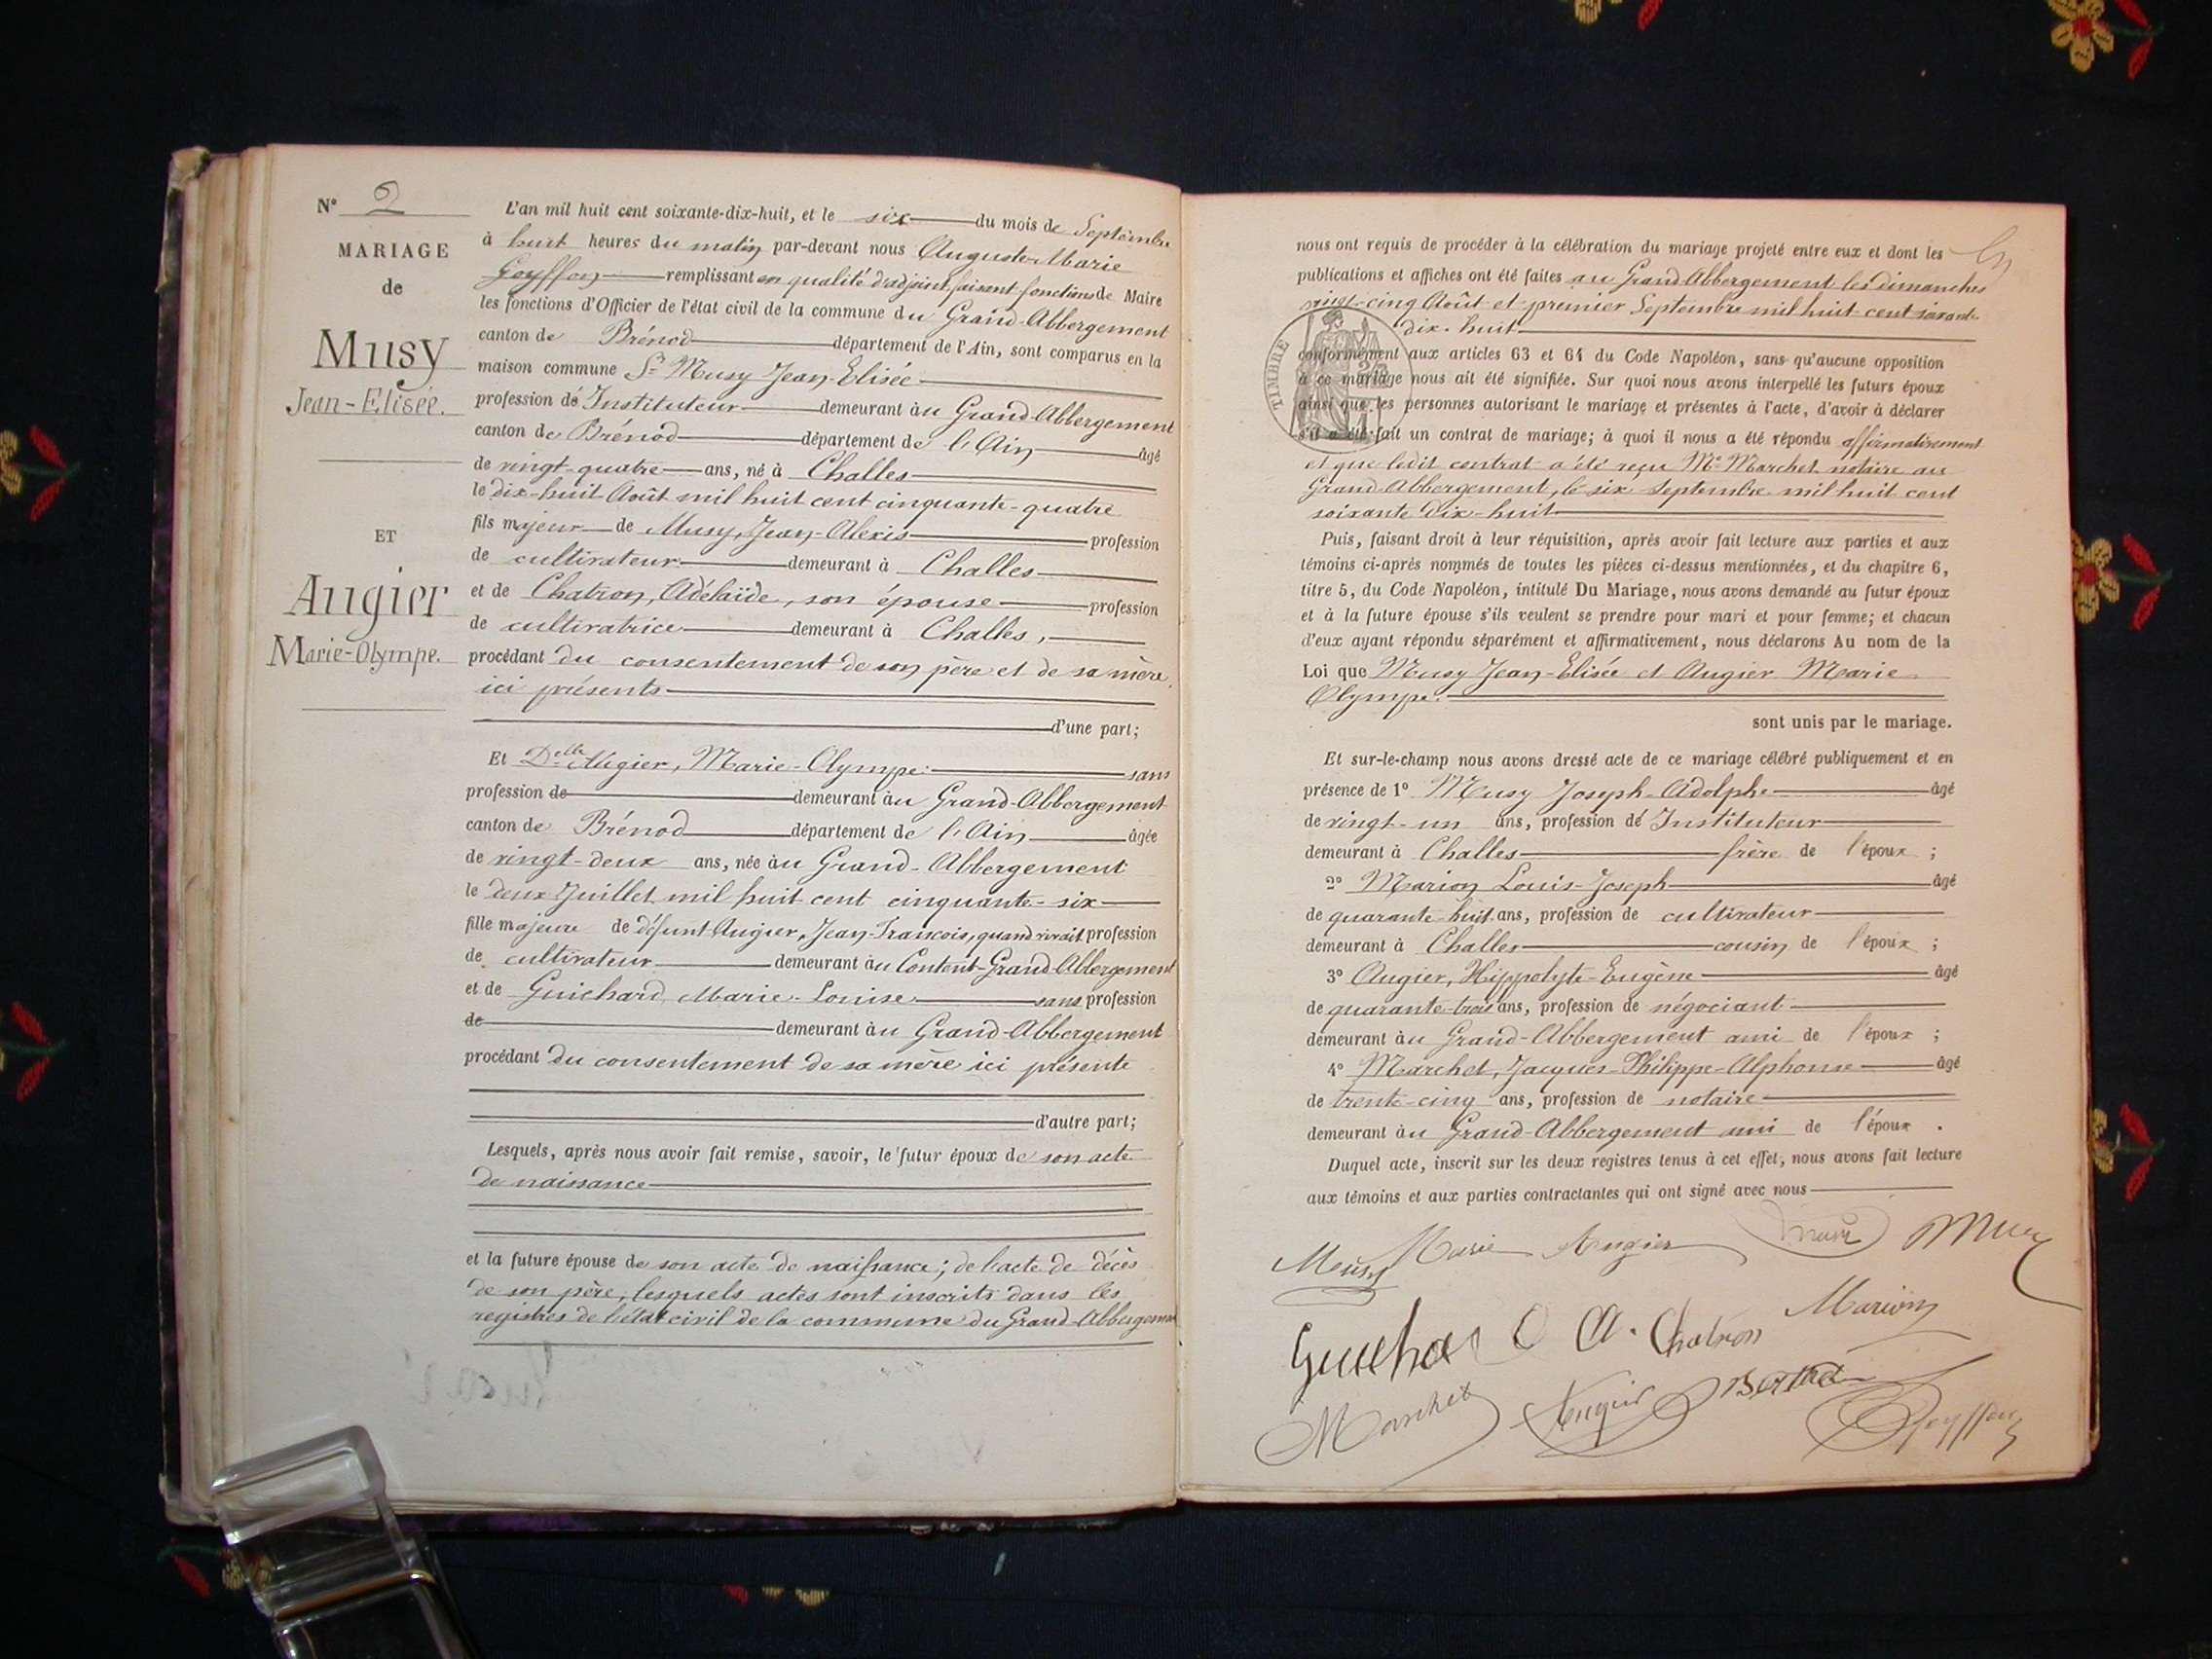 N° 2
MARIAGE
de
Musy
Jean-Elisée.
ET
Augier
Marie-Olympe.
L'an mil huit cent soixante-dix-huit, et le six du mois de Septembre
à huit heures du matin par-devant nous Auguste-Marie
Goyffon remplissant en qualité d'adjoint faisant fonctions de Maire
les fonctions d'Officier de l'état civil de la commune du Grand-Abbergement
canton de Brénod département de l'Ain, sont comparus en la
maison commune Sr Musy Jean-Elisée
profession de Instituteur demeurant au Grand-Abbergement
canton de Brénod département de l'Ain âgé
de vingt-quatre ans, né à Challes
le dix-huit Août mil huit cent cinquante-quatre
fils majeur de Musy, Jean-Alexis profession
de cultivateur demeurant à Challes
et de Chatron, Adélaïde, son épouse profession
de cultivatrice demeurant à Challes,
procédant du consentement de son père et de sa mère
ici présents
d'une part;
Et Delle Augier, Marie-Olympe sans
profession de demeurant au Grand-Abbergement
canton de Brénod département de l'Ain âgée
de vingt-deux ans, née au Grand-Abbergement
le deux Juillet mil huit cent cinquante-six
fille majeure de défunt Augier, Jean-François, quand vivait profession
de cultivateur demeurant au Content-Grand-Abbergement
et de Guichard, Marie-Louise sans profession
de demeurant au Grand-Abbergement
procédant du consentement de sa mère ici présente
d'autre part;
Lesquels, après nous avoir fait remise, savoir, le futur époux de son acte
de naissance
et la future épouse de son acte de naissance; de l'acte de décès
de son père, lesquels actes sont inscrits dans les
registres de l'état civil de la commune du Grand-Abbergement
nous ont requis de procéder à la célébration du mariage projeté entre eux et dont les
publications et affiches ont été faites au Grand-Abbergement les dimanches
vingt-cinq Août et premier Septembre mil huit cent soixante
dix-huit
TIMBRE
conformément aux articles 63 et 64 du Code Napoléon, sans qu'aucune opposition
à ce mariage nous ait été signifiée. Sur quoi nous avons interpellé les futurs époux
ainsi que les personnes autorisant le mariage et présentes à l'acte, d'avoir à déclarer
s'il a été fait un contrat de mariage; à quoi il nous a été répondu affirmativement
et que ledit contrat a été reçu Me Marchet notaire au
Grand-Abbergement, le six Septembre mil huit cent
soixante dix-huit
Puis, faisant droit à leur réquisition, après avoir fait lecture aux parties et aux
témoins ci-après nommés de toutes les pièces ci-dessus mentionnées, et du chapitre 6,
titre 5, du Code Napoléon, intitulé Du Mariage, nous avons demandé au futur époux
et à la future épouse s'ils veulent se prendre pour mari et pour femme; et chacun
d'eux ayant répondu séparément et affirmativement, nous déclarons Au nom de la
Loi que Musy Jean-Elisée et Augier Marie
Olympe.
sont unis par le mariage.
Et sur-le-champ nous avons dressé acte de ce mariage célébré publiquement et en
présence de 1° Musy Joseph-Adolphe âgé
de vingt-un ans, profession de Instituteur
demeurant à Challes frère de l'époux ;
2° Marion Louis-Joseph âgé
de quarante-huit ans, profession de cultivateur
demeurant à Challes cousin de l'époux ;
3° Augier, Hippolyte-Eugène âgé
de quarante-trois ans, profession de négociant
demeurant au Grand-Abbergement ami de l'époux ;
4° Marchet, Jacques-Philippe-Alphonse âgé
de trente-cinq ans, profession de notaire
demeurant au Grand-Abbergement ami de l'époux .
Duquel acte, inscrit sur les deux registres tenus à cet effet, nous avons fait lecture
aux témoins et aux parties contractantes qui ont signé avec nous
Musy Marie Augier Musy Musy
Guichard A. Chatron Marion
Marchet Augier Goyffon